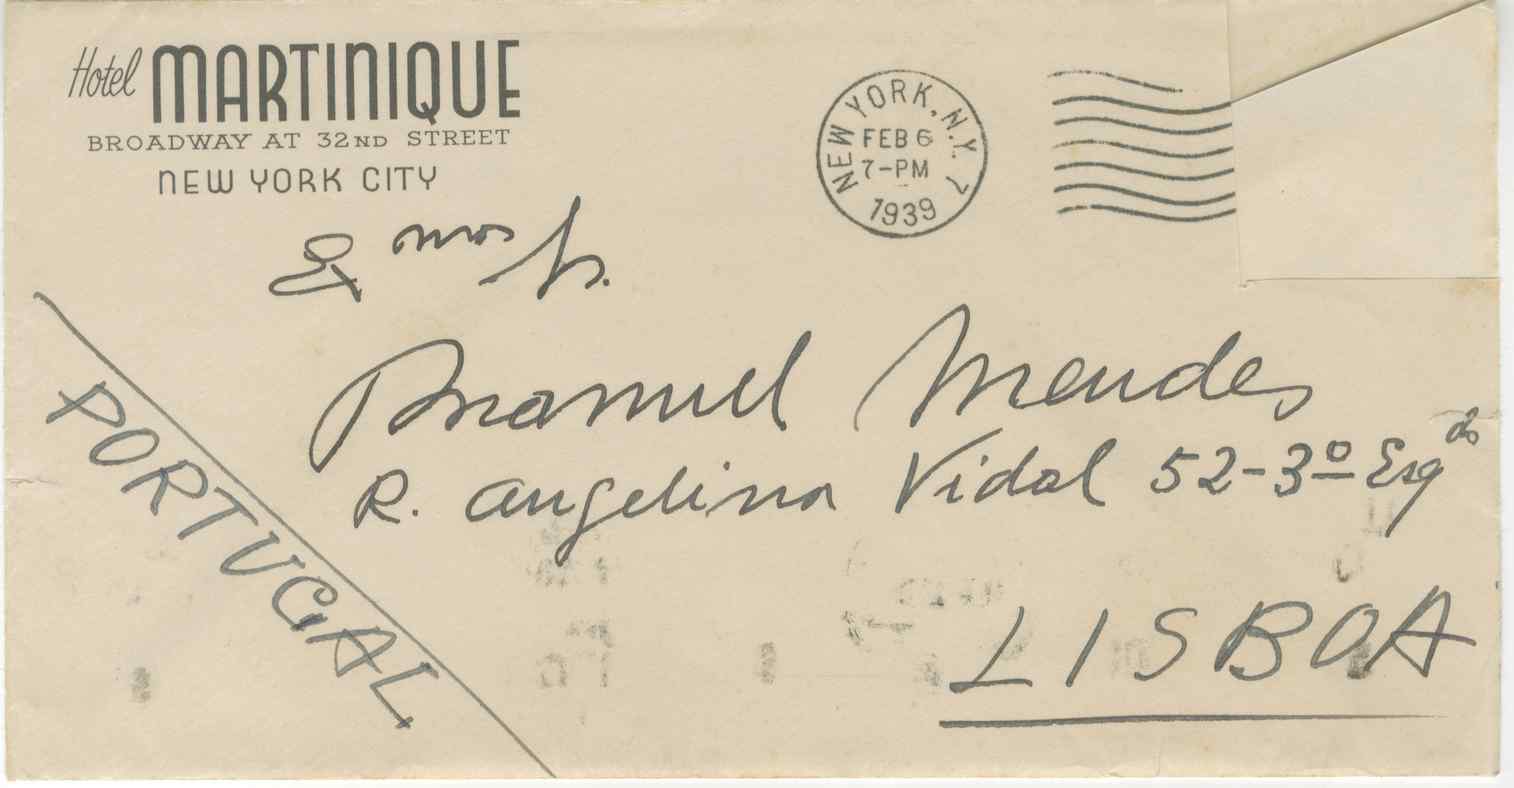 Hotel MARTINIQUE
BROADWAY AT 32ND STREET
NEW YORK CITY
NEW YORK, N.Y. 7
FEB 6
7-PM
1939
Exmos Sr.
Manuel Mendes
R. Angelina Vidal 52-3º Esqdo
LISBOA
PORTUGAL